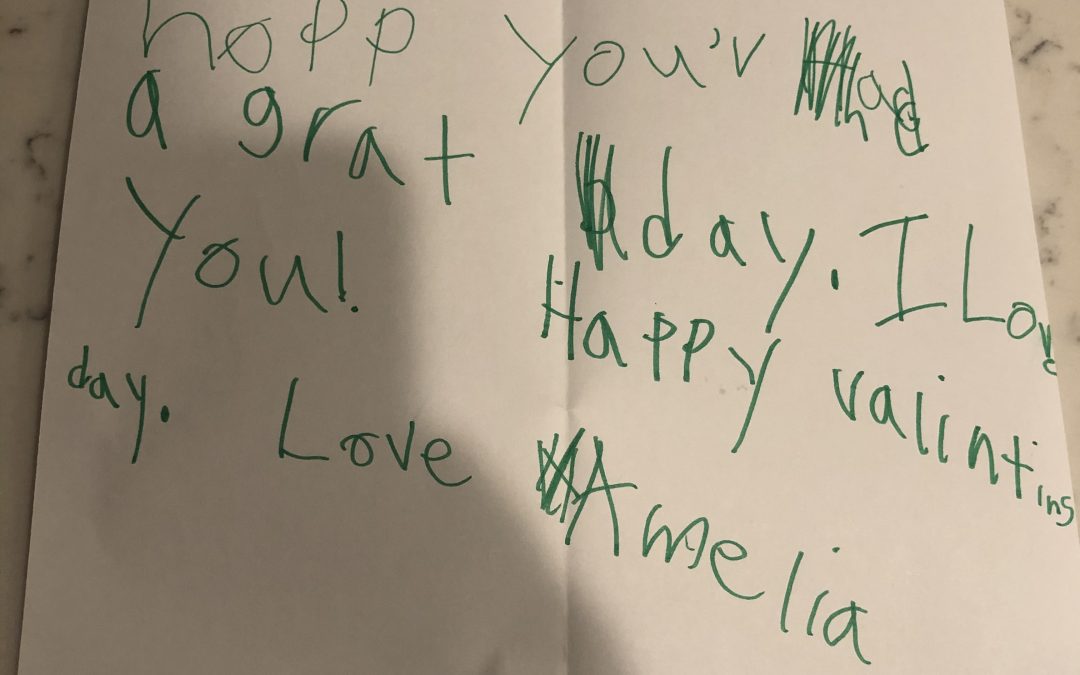 hopp you'v had
a grat day. I Love
You! Happy valintins
day. Love Amelia